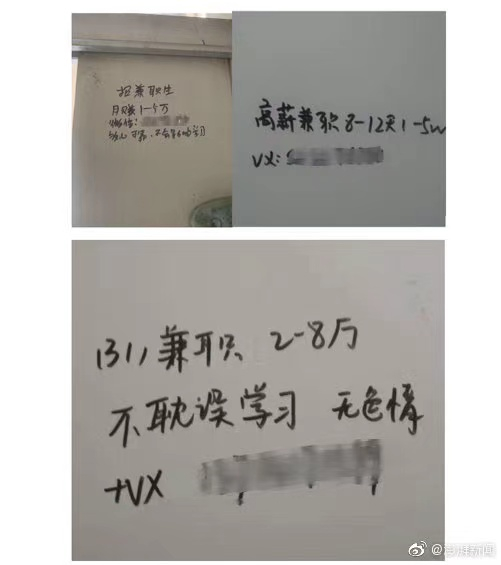 招兼职生
月赚1-5万
微信:
放心可靠,不会耽误学习
高薪兼职8-12天1-5w
VX:
(31)兼职 2-8万
不耽误学习 无色情
+VX
@澎湃新闻